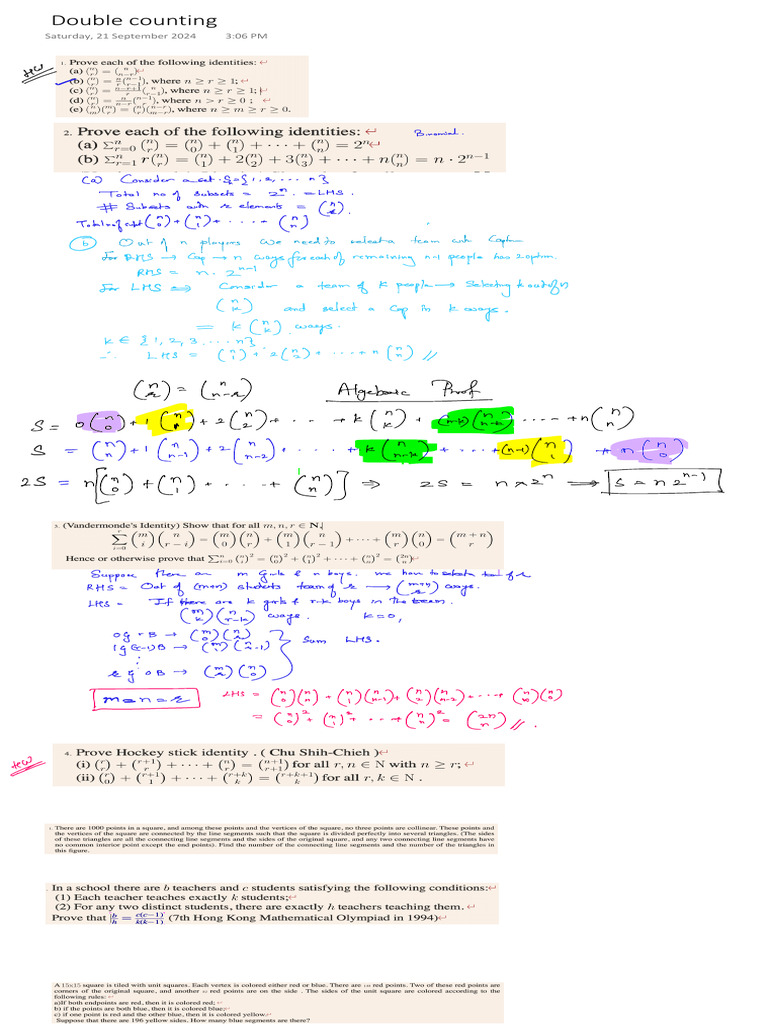 Double counting
Saturday, 21 September 2024 3:06 PM
HW
1. Prove each of the following identities:↵
(a) (n r) = (n n−r)↵
(b) (n r) = n/r (n−1 r−1), where n ≥ r ≥ 1;↵
(c) (n r) = (n−r+1)/r (n r−1), where n ≥ r ≥ 1;↵
(d) (n r) = n/(n−r) (n−1 r), where n > r ≥ 0 ;↵
(e) (n m)(m r) = (n r)(n−r m−r), where n ≥ m ≥ r ≥ 0.
2. Prove each of the following identities:↵ Binomial.
(a) Σⁿ_{r=0} (n r) = (n 0) + (n 1) + ⋯ + (n n) = 2ⁿ↵
(b) Σⁿ_{r=1} r(n r) = (n 1) + 2(n 2) + 3(n 3) + ⋯ + n(n n) = n · 2ⁿ⁻¹
(a) Consider a set S = {1, 2, ... n}
Total no of subsets = 2ⁿ = LHS
# Subsets with r elements = (n r)
Total no of subset (n 0) + (n 1) + ... + (n n)
(b) Out of n players We need to select a team with Captain
For RHS → Cap → n ways for each of remaining n-1 people has 2 option.
RHS = n · 2ⁿ⁻¹
For LHS ⇒ Consider a team of k people → Selecting k out of n
(n k) and select a Cap in k ways.
= k (n k) ways.
k ∈ {1, 2, 3 ... n}
∴ LHS = (n 1) + 2(n 2) + ... + n(n n) //
(n r) = (n n-r) Algebraic Proof
S = 0(n 0) + 1(n 1) + 2(n 2) + ... + k(n k) + (n-k)(n n-k) ... + n(n n)
S = (n n) + 1(n n-1) + 2(n n-2) + ... + k(n n-k) + ... + (n-1)(n 1) + n(n 0)
2S = n[(n 0) + (n 1) + ... + (n n)] ⇒ 2S = n × 2ⁿ ⇒ S = n 2ⁿ⁻¹
3. (Vandermonde's Identity) Show that for all m, n, r ∈ N,
Σ^r_{i=0} (m i)(n r−i) = (m 0)(n r) + (m 1)(n r−1) + ⋯ + (m r)(n 0) = (m+n r)
Hence or otherwise prove that Σⁿ_{i=0} (n i)² = (n 0)² + (n 1)² + ⋯ + (n n)² = (2n n)↵
Suppose there are m girls & n boys. we have to select of r
RHS = Out of (m+n) students team of r → (m+n r) ways.
LHS = If there are k girls & r-k boys in the team.
(m k)(n r-k) ways. k = 0,
0 G r B → (m 0)(n r)
1 G (r-1) B → (m 1)(n r-1) Sum LHS.
⋮
r G 0 B → (m r)(n 0)
m = n = r
LHS = (n 0)(n n) + (n 1)(n n-1) + (n 2)(n n-2) + ... (n n)(n 0)
= (n 0)² + (n 1)² + ... + (n n)² = (2n n) //.
HW
4. Prove Hockey stick identity . ( Chu Shih-Chieh )↵
(i) (r r) + (r+1 r) + ⋯ + (n r) = (n+1 r+1) for all r, n ∈ N with n ≥ r;↵
(ii) (r 0) + (r+1 1) + ⋯ + (r+k k) = (r+k+1 k) for all r, k ∈ N .
1. There are 1000 points in a square, and among these points and the vertices of the square, no three points are collinear. These points and
the vertices of the square are connected by the line segments such that the square is divided perfectly into several triangles. (The sides
of these triangles are all the connecting line segments and the sides of the original square, and any two connecting line segments have
no common interior point except the end points). Find the number of the connecting line segments and the number of the triangles in
this figure.
. In a school there are b teachers and c students satisfying the following conditions:↵
(1) Each teacher teaches exactly k students;↵
(2) For any two distinct students, there are exactly h teachers teaching them.↵
Prove that b/h = c(c−1)/k(k−1) (7th Hong Kong Mathematical Olympiad in 1994)↵
A 15x15 square is tiled with unit squares. Each vertex is colored either red or blue. There are red points. Two of these red points are
corners of the original square, and another red points are on the side . The sides of the unit square are colored according to the
following rules:↵
a)If both endpoints are red, then it is colored red;↵
b) if the points are both blue, then it is colored blue;↵
c) if one point is red and the other blue, then it is colored yellow.↵
Suppose that there are 196 yellow sides. How many blue segments are there?